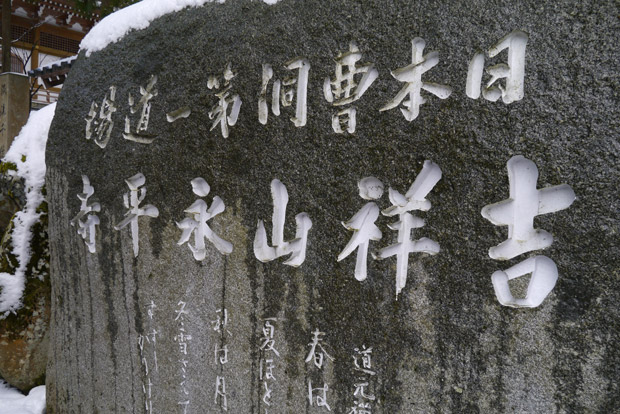 日本曹洞第一道場
吉祥山永平寺
道元禅
春は
夏ほと
秋は月
冬雪さえて